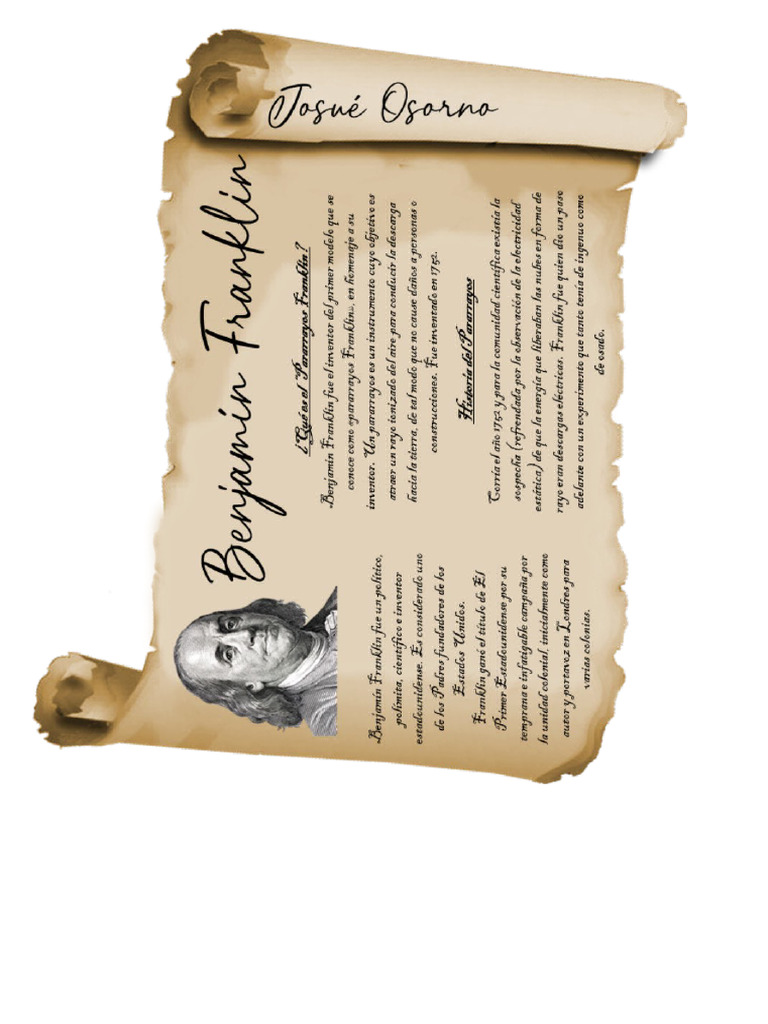 Josué Osorno
Benjamín Franklin
Benjamín Franklin fue un político,
polímita, científico e inventor
estadounidense. Es considerado uno
de los Padres fundadores de los
Estados Unidos.
Franklin gano el título de El
Primer Estadounidense por su
temprana e infatigable campaña por
la unidad colonial, inicialmente como
autor y portavoz en Londres para
varias colonias.
¿Qué es el Pararrayos Franklin?
Benjamín Franklin fue el inventor del primer modelo que se
conoce como «pararrayos Franklin», en homenaje a su
inventor. Un pararrayos es un instrumento cuyo objetivo es
atraer un rayo ionizado del aire para conducir la descarga
hacia la tierra, de tal modo que no cause daños a personas o
construcciones. Fue inventado en 1752.
Historia del Pararrayos
Corría el año 1752 y para la comunidad científica existía la
sospecha (refrendada por la observación de la electricidad
estática) de que la energía que liberaban las nubes en forma de
rayo eran descargas eléctricas. Franklin fue quien dio un paso
adelante con un experimento que tanto tenía de ingenuo como
de osado.